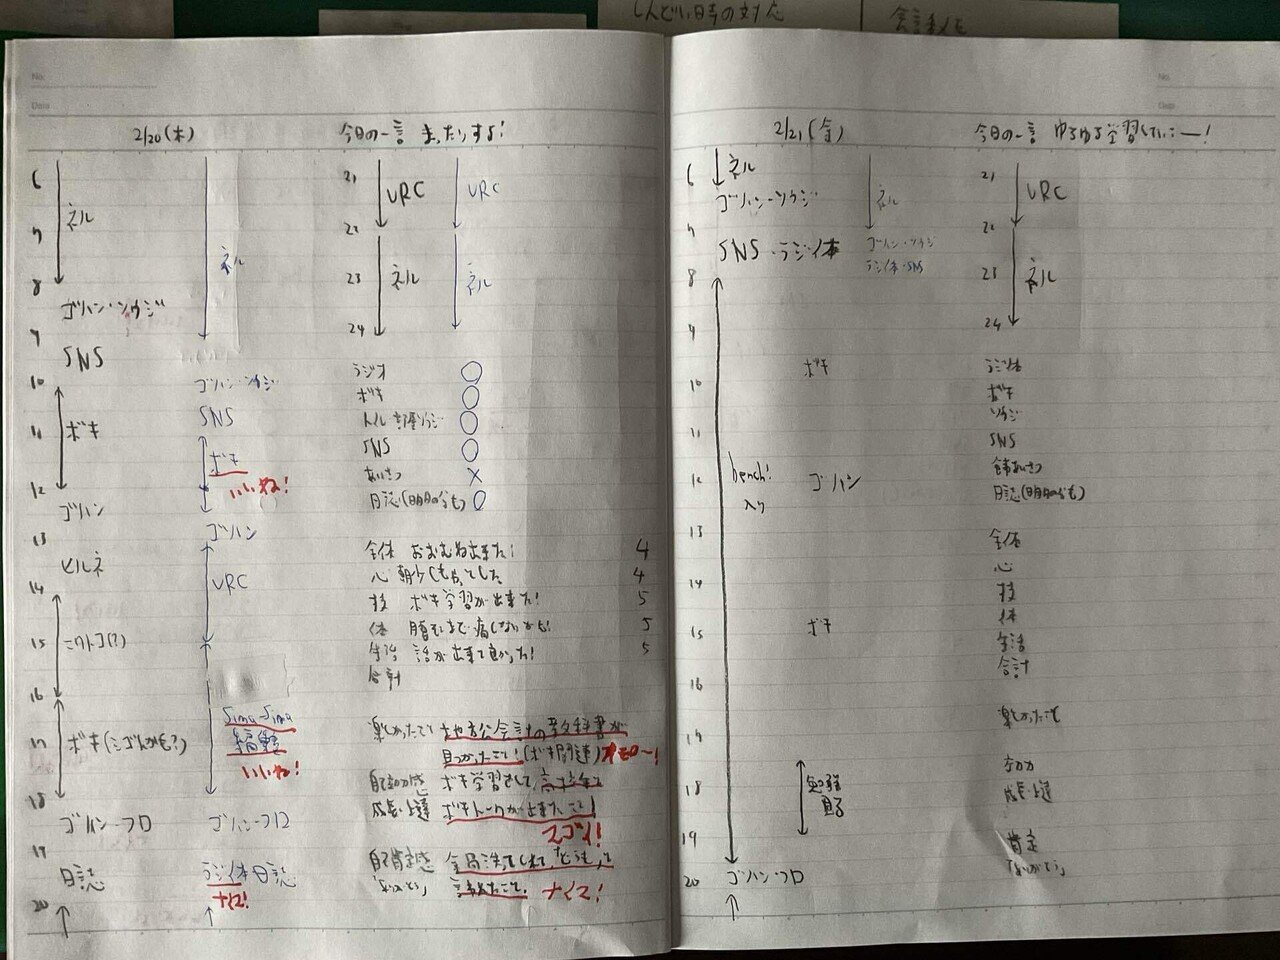 しんどい時の対応
会話メモ
No.
Date
2/20(木)
今日の一言 まったりすよ!
6
ネル
7
8
ゴハン・ソウジ
9
SNS
10
ボキ
11
12
ゴハン
13
ヒルネ
14
15
16
17
ボキ
18
ゴハン・フロ
19
日誌
20
ネル
ゴハン・ソウジ
SNS
ボキ
いいね!
ゴハン
VRC
Sima-Sima
いいね!
ゴハン・フロ
ラジ体 日誌
ナイス!
21
VRC
VRC
22
23
ネル
ネル
24
ラジオ ○
ボキ ○
トイレ 部屋ソウジ ○
SNS ○
あいさつ ×
日誌(明日の分も) ○
全体 おおむね出来た! 4
心 4
技 ボキ学習が出来た! 5
体 5
生活 話が出来て良かった! 5
合計
楽しかったこと 地方公会計の教科書が
見つかったこと!(ボキ関連)
自己効力感 ボキ学習をして、
成長・上達 ボキトークが出来たこと!
スゴイ!
自己肯定感
「ありがとう」 言えたこと。 ナイス!
No.
Date
2/21(金)
今日の一言 ゆるゆる学習していこー!
6
ネル
ゴハン・ソウジ
7
SNS・ラジ体
8
9
10
11
12
bench!
入り
13
14
15
16
17
18
19
20
ゴハン・フロ
ネル
ゴハン・ソウジ
ラジ体・SNS
ボキ
ゴハン
ボキ
勉強
21
VRC
22
23
ネル
24
ラジ体
ボキ
ソウジ
SNS
日誌(明日の分も)
全体
心
技
体
生活
合計
楽しかったこと
効力
成長・上達
肯定
「ありがとう」